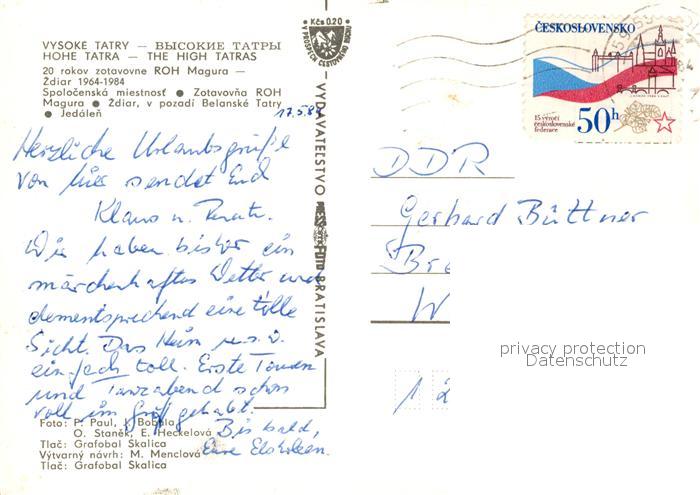 VYSOKÉ TATRY — ВЫСОКИЕ ТАТРЫ
HOHE TATRA — THE HIGH TATRAS
20 rokov zotavovne ROH Magura —
Ždiar 1964-1984
Spoločenská miestnosť ● Zotavovňa ROH
Magura ● Ždiar, v pozadí Belanské Tatry
● Jedáleň
Kčs 0.20
V PROSPECH CESTOVNÉHO RUCHU
VYDAVATEĽSTVO
BRATISLAVA
ČESKOSLOVENSKO
15. výročí
československé
federace
50h
17.5.84
Herzliche Urlaubsgrüße
von hier sendet Euch
Klaus u. Renate.
Wir haben bisher ein
märchenhaftes Wetter und
dementsprechend eine tolle
Sicht. Das Heim u.s.w.
einfach toll. Erste Touren
und Tanzabend schon
voll im Griff gehabt.
Bis bald,
Eure
DDR
Gerhard Büttner
Bre
W
1 2
privacy protection
Datenschutz
Foto: P. Paul, J. Bobula
O. Staněk, E. Heckelová
Tlač: Grafobal Skalica
Výtvarný návrh: M. Menclová
Tlač: Grafobal Skalica